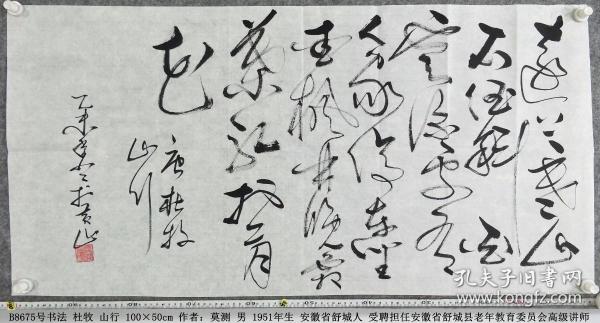 遠上寒山
石徑斜 白
雲深處有
人家停車坐
愛枫林晚霜
葉红於二月
花
唐杜牧
山行
孔夫子旧书网
B8675号书法 杜牧 山行 100×50cm 作者：莫测 男 1951年生 安徽省舒城人 受聘担任安徽省舒城县老年教育委员会高级讲师